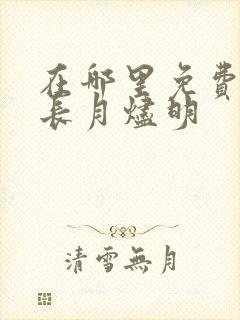 在哪里免費
長月燼明
清雪無月